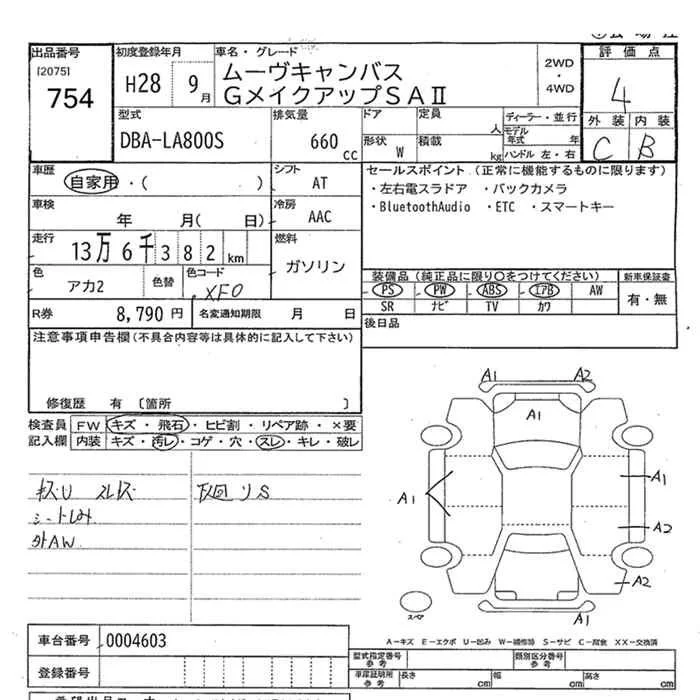 出品番号 初度登録年月 車名・グレード 評価点
[2075]
754 H28 9月 ムーヴキャンバス
GメイクアップSAⅡ
2WD
・
4WD
4
外装 内装
C B
型式 排気量 ドア 定員 人 ディーラー・並行
DBA-LA800S 660cc モデル年式 年
形状 W 積載 kg ハンドル 左・右
車歴 自家用・( ) シフト AT
セールスポイント (正常に機能するものに限ります)
・左右電スラドア ・バックカメラ
・BluetoothAudio ・ETC ・スマートキー
車検 年 月( 日) 冷房 AAC
走行 13万6千382km 燃料 ガソリン
色 アカ2 色替 色コード XF0
装備品(純正品に限り○をつけてください) 新車保証書
PS PW ABS エアB AW 有・無
SR ナビ TV カワ
R券 8,790円 名変通知期限 月 日
後日品
注意事項申告欄(不具合内容等は具体的に記入して下さい)
修復歴 有 〔箇所 〕
検査員 FW キズ・飛石・ヒビ割・リペア跡・×要
記入欄 内装 キズ・汚レ・コゲ・穴・スレ・キレ・破レ
キズU スレキズ
シートしみ
外AW
下回リS
A1 A2
A1
A1 A1
A2
A2
スペア A1
A-キズ E-エクボ U-凹み W-補修跡 S-サビ C-腐食 XX-交換済
車台番号 0004603
型式指定番号 参考 類別区分番号 参考
登録番号
車庫証明所 参考 長さ cm 幅 cm 高さ cm